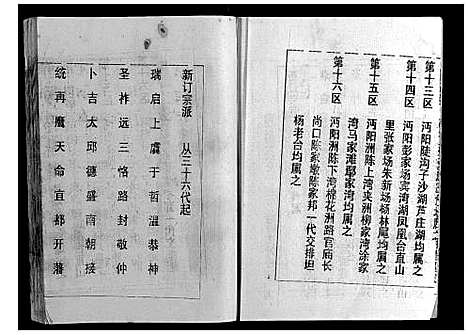 第十三区 沔阳陡沟子沙湖芦庄湖均属之
第十四区 沔阳彭家场宾湾湖凤凰台直山
里张家场朱新场杨林尾均属之
第十五区 沔阳洲陈上湾夹洲柳家湾涂家
湾马家滩鄢家湾均属之
第十六区 沔阳洲陈下湾棉花洲路官庙长
尚口陈家墩陈家邦一代交排坦
杨老台均属之
新订宗派 从三十六代起
瑞启上虞于哲温恭神
圣祚远三恪路封敬仲
卜吉太邱德盛南朝接
统再魔天命宜都开藩